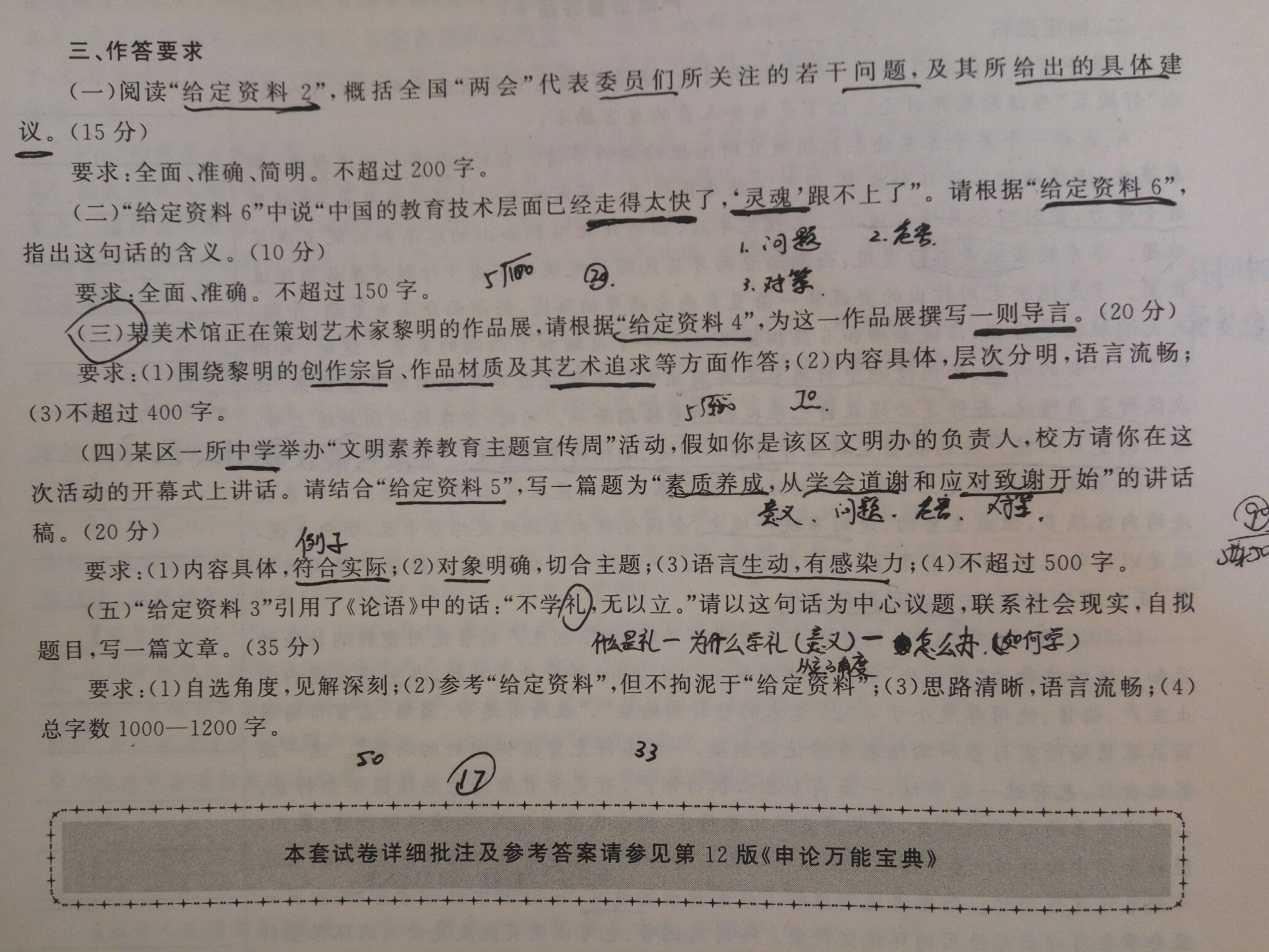 三、作答要求
(一)阅读“给定资料2”,概括全国“两会”代表委员们所关注的若干问题,及其所给出的具体建
议。(15分)
要求:全面、准确、简明。不超过200字。
(二)“给定资料6”中说“中国的教育技术层面已经走得太快了,‘灵魂’跟不上了”。请根据“给定资料6”,
1. 问题 2. 危害.
指出这句话的含义。(10分)
3. 对策.
要求:全面、准确。不超过150字。
(三)某美术馆正在策划艺术家黎明的作品展,请根据“给定资料4”,为这一作品展撰写一则导言。(20分)
要求:(1)围绕黎明的创作宗旨、作品材质及其艺术追求等方面作答;(2)内容具体,层次分明,语言流畅;
(3)不超过400字。
(四)某区一所中学举办“文明素养教育主题宣传周”活动,假如你是该区文明办的负责人,校方请你在这
次活动的开幕式上讲话。请结合“给定资料5”,写一篇题为“素质养成,从学会道谢和应对致谢开始”的讲话
意义、问题、危害、对策.
稿。(20分)
例子
要求:(1)内容具体,符合实际;(2)对象明确,切合主题;(3)语言生动,有感染力;(4)不超过500字。
(五)“给定资料3”引用了《论语》中的话:“不学礼,无以立。”请以这句话为中心议题,联系社会现实,自拟
题目,写一篇文章。(35分)
什么是礼一为什么学礼(意义)一怎么办.(如何学)
要求:(1)自选角度,见解深刻;(2)参考“给定资料”,但不拘泥于“给定资料”;(3)思路清晰,语言流畅;(4)
总字数1000—1200字。
50 17 33
本套试卷详细批注及参考答案请参见第12版《申论万能宝典》